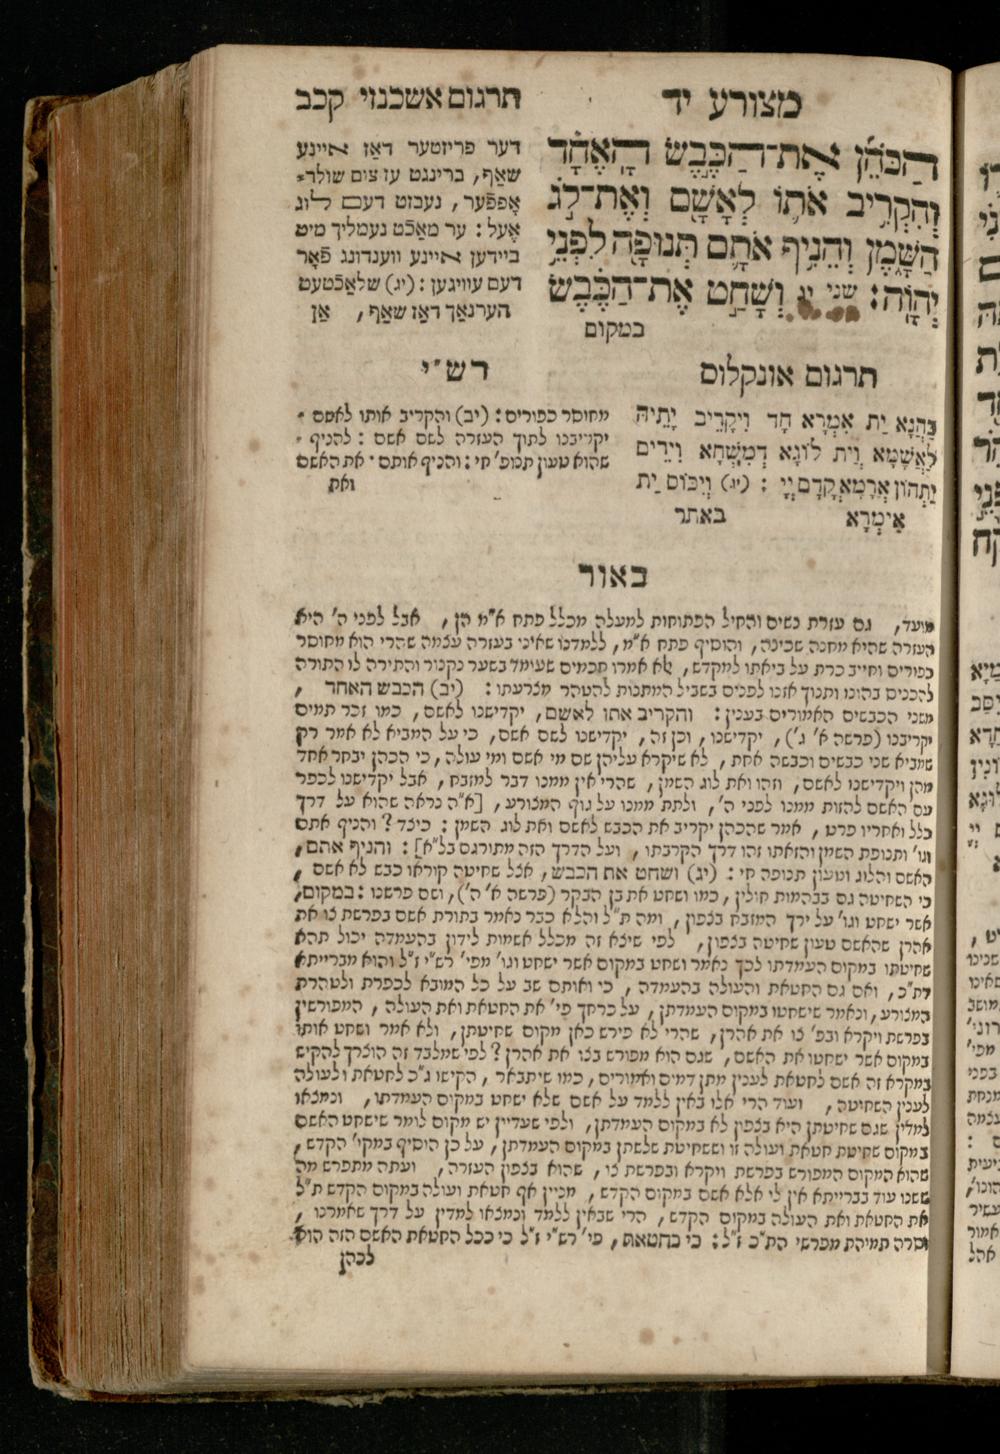 מצורע יד
תרגום אשכנזי קכב
הַכֹּהֵן אֶת־הַכֶּבֶשׂ הָאֶחָד
וְהִקְרִיב אֹתוֹ לְאָשָׁם וְאֶת־לֹג
הַשָּׁמֶן וְהֵנִיף אֹתָם תְּנוּפָה לִפְנֵי
יְהוָֹה: שני יג וְשָׁחַט אֶת־הַכֶּבֶשׂ
במקום
דער פריזטער דאז איינע
שאף, ברינגט עז צום שולד־
אפפער, נעבזט דעם לוג
אעל: ער מאכט נעמליך מיט
ביידען איינע ווענדונג פאר
דעם עוויגען: (יג) שלאכטעט
הערנאך דאז שאף, אן
תרגום אונקלוס
כַּהֲנָא יַת אִמְרָא חָד וִיקָרֵיב יָתֵיהּ
לַאֲשָׁמָא וְיַת לוֹגָא דְמִשְׁחָא וִירֵים
יַתְהוֹן אֲרָמָא קֳדָם יְיָ: (יג) וְיִכּוֹס יַת
אִימְרָא באתר
רש״י
מחוסר כפורים: (יב) והקריב אותו לאשם.
יקריבנו לתוך העזרה לשם אשם: להניף.
שהוא טעון תנופ' חי: והניף אותם. את האשם
ואת
באור
מועד, גם עזרת נשים והחיל הפתוחות למעלה מכלל פתח א"מ הן, אבל לפני ה' היא
העזרה שהיא מחנה שכינה, והוסיף פתח א"מ, ללמדנו שאיני בעזרה עצמה שהרי הוא מחוסר
כפורים וחייב כרת על ביאתו למקדש, אלא אמרו חכמים שעומד בשער נקנור והתירה לו התורה
להכניס בהונו ותנוך אזנו לפנים בשביל המתנות להטהר מצרעתו: (יב) הכבש האחד,
משני הכבשים האמורים בענין: והקריב אתו לאשם, יקדישנו לאשם, כמו זכר תמים
יקריבנו (פרשה א' ג'), יקדישנו, וכן זה, יקדישנו לשם אשם, כי על המביא לא אמר רק
שמביא שני כבשים וכבשה אחת, לא שיקרא עליהן שם מי אשם ומי עולה, כי הכהן יבחר אחד
מהן ויקדישנו לאשם, וזהו ואת לוג השמן, שהרי אין ממנו דבר למזבח, אבל יקדישנו לכפר
עם האשם להזות ממנו לפני ה', ולתת ממנו על גוף המצורע, [א"ה נראה שהוא על דרך
כלל ואחריו פרט, אמר שהכהן יקריב את הכבש לאשם ואת לוג השמן: כיצד? והניף אתם
וגו' ותנופת השמן והזאתו זהו דרך הקרבתו, ועל הדרך הזה מתורגם בל"א]: והניף אתם,
האשם והלוג וטעון תנופה חי: (יג) ושחט את הכבש, אצל שחיטה קוראו כבש לא אשם,
כי השחיטה גם בבהמות חולין, כמו ושחט את בן הבקר (פרשה א' ה'), ושם פרשנו: במקום,
אשר ישחט וגו' על ירך המזבח בצפון, ומה ת"ל והלא כבר נאמר בתורת אשם בפרשת צו את
אהרן שהאשם טעון שחיטה בצפון, לפי שיצא זה מכלל אשמות לידון בהעמדה יכול תהא
שחיטתו במקום העמדתו לכך נאמר ושחט במקום אשר ישחט וגו' מפי' רש"י ז"ל והוא מברייתא
דת"כ, ואם גם החטאת והעולה בהעמדה, כי ואותם שב על כל המובא לכפרת ולטהרת
המצורע, ונאמר שישחטו במקום העמדתן, על כרחך פי' את החטאת ואת העולה, המפורשין
בפרשת ויקרא ובפ' צו את אהרן, שהרי לא פירש כאן מקום שחיטתן, ולא אמר ושחט אותו
במקום אשר ישחטו את האשם, שגם הוא מפורש בצו את אהרן? לפי שמלבד זה הוצרך להקיש
במקרא זה אשם לחטאת לענין מתן דמים ואמורים, כמו שיתבאר, הקישו ג"כ לחטאת ולעולה
לענין השחיטה, ועוד הרי אלו באין ללמד על אשם שלא ישחט במקום העמדתו, ונמצאו
למדין שגם שחיטתן היא בצפון לא במקום העמדתן, ולפי שעדיין יש מקום לומר שישחט האשם
במקום שחיטת חטאת ועולה זו וששחיטת שלשתן במקום העמדתן, על כן הוסיף במקו' הקדש,
שהוא המקום המפורש בפרשת ויקרא ובפרשת צו, שהוא בצפון העזרה, ועתה מתפרש מה
ששנו עוד בברייתא אין לי אלא אשם במקום הקדש, מניין אף חטאת ועולה במקום הקדש ת"ל
את החטאת ואת העולה במקום הקדש, הרי שבאין ללמד ונמצאו למדין על דרך שאמרנו,
וסרה תמיהת מפרשי הת"כ ז"ל: כי כחטאת, פי' רש"י ז"ל כי ככל החטאת האשם הזה הוא
לכהן